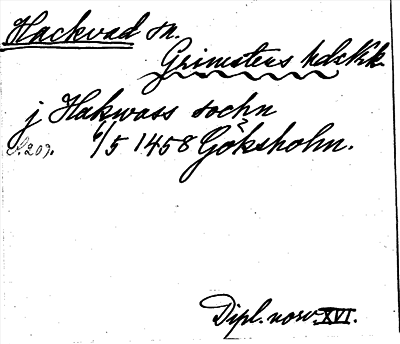 Hackvad sn.
Grimstens hds Kk.
j Hakwass sochn
S. 207. 6/5 1458 Göksholm.
Dipl. norv. XVI.